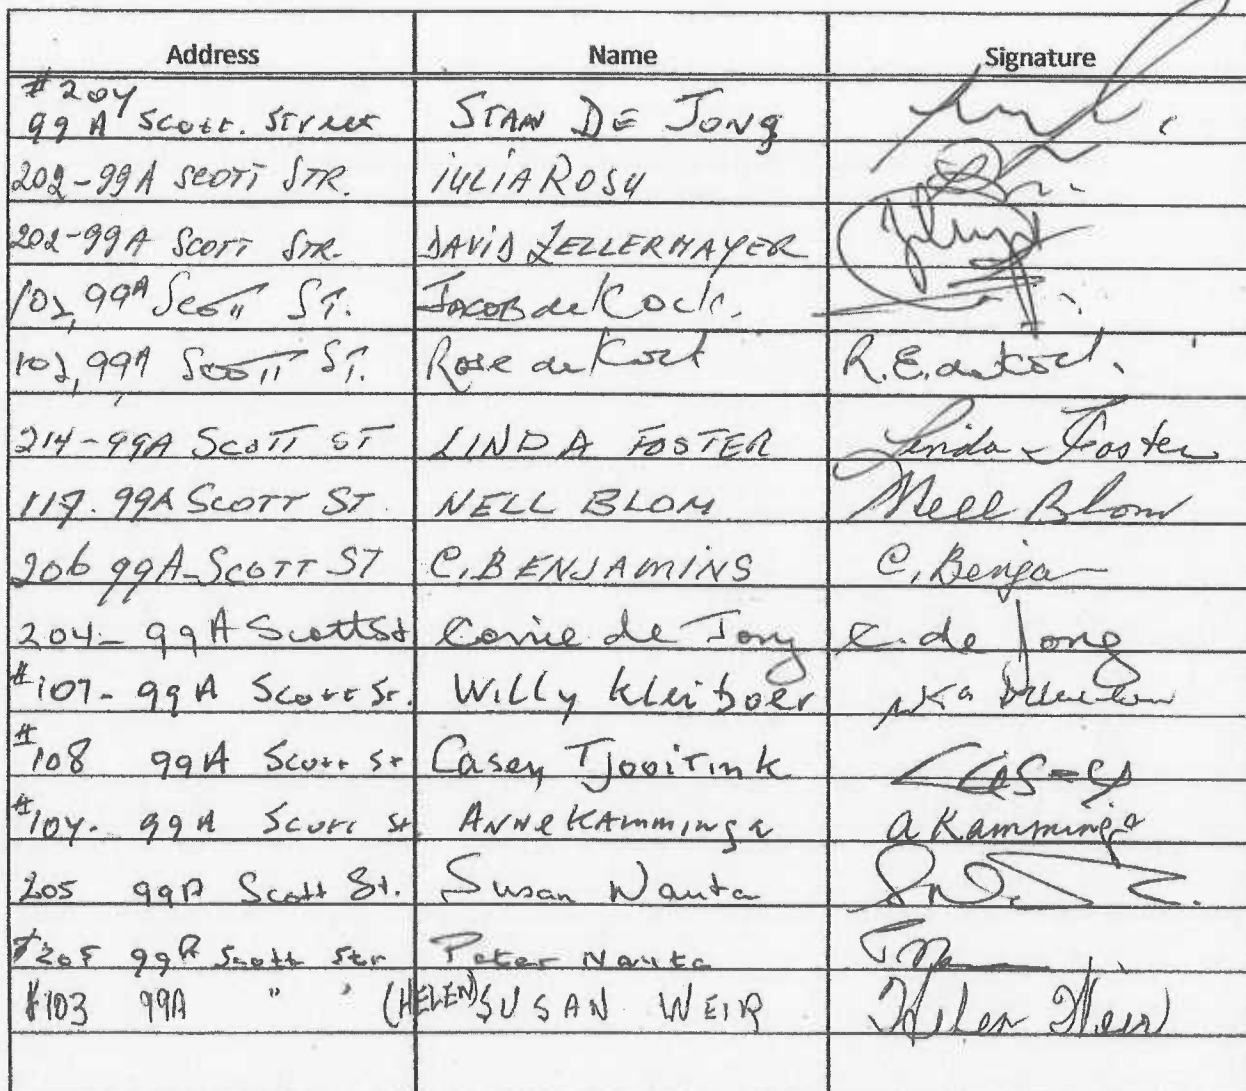 Address Name Signature
#204
99A Scott. Street STAN DE JONG
202-99A SCOTT STR. IULIA ROSU
202-99A SCOTT STR. DAVID ZELLERMAYER
102, 99A Scott ST. Jacob de Kock.
102, 99A Scott ST. Rose de Kock R.E. de Kock.
214-99A SCOTT ST LINDA FOSTER Linda Foster
117. 99A SCOTT ST. NELL BLOM Nell Blom
206 99A-SCOTT ST C. BENJAMINS C. Benja
204- 99A Scott St Corrie de Jong C. de Jong
#107- 99A Scott St. Willy Kleiboer
#108 99A Scott St Casey Tjooitink
#104. 99A Scott St ANNE KAMMINGA A Kamminga
205 99A Scott St. Susan Nauta
#205 99A Scott Str Peter Nauta
#103 99A " " (HELEN) SUSAN WEIR Helen Weir